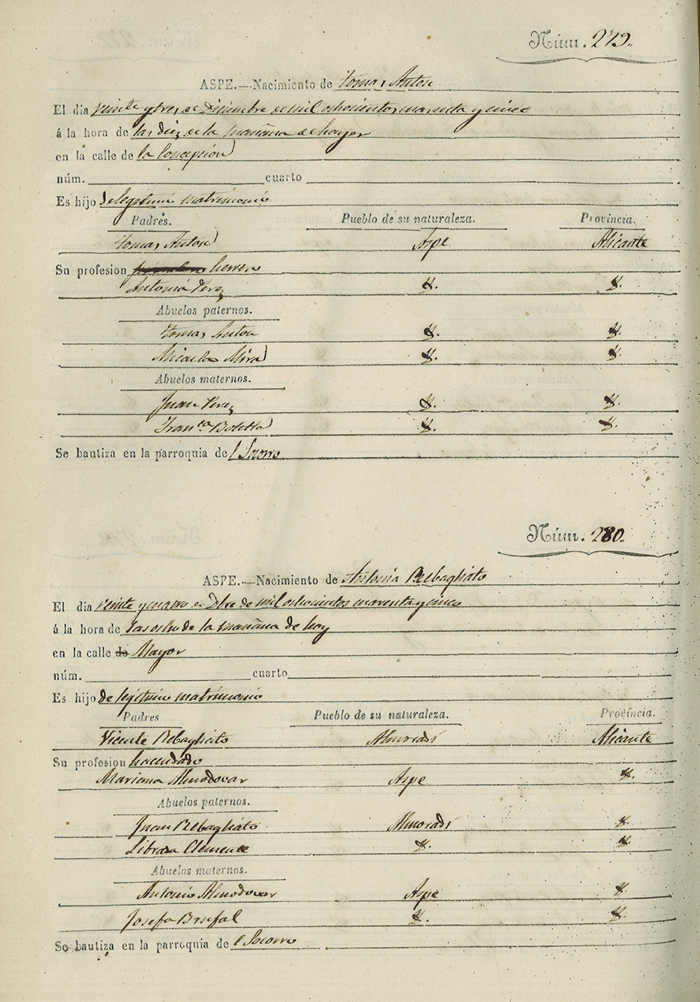 Núm. 279.
ASPE.—Nacimiento de Tomas Anton
El dia veinte y tres de Diciembre de mil ochocientos cuarenta y cinco
á la hora de las diez de la mañana de hoy
en la calle de la Concepcion
núm. cuarto
Es hijo de legitimo matrimonio
Padres. Pueblo de su naturaleza. Provincia.
Tomas Anton Aspe Alicante
Su profesion herrero
Antonia Perez Y. Y.
Abuelos paternos.
Tomas Anton Y. Y.
Micaela Mira Y. Y.
Abuelos maternos.
Juan Perez Y. Y.
Fran.ca Botella Y. Y.
Se bautiza en la parroquia del Socorro
Núm. 280.
ASPE.—Nacimiento de Antonia Rebagliato
El dia veinte y cuatro de Dbre de mil ochocientos cuarenta y cinco
á la hora de las ocho de la mañana de hoy
en la calle de Mayor
núm. cuarto
Es hijo de legitimo matrimonio
Padres Pueblo de su naturaleza. Provincia.
Vicente Rebagliato Almoradí Alicante
Su profesion hacendado
Mariana Almodovar Aspe Y.
Abuelos paternos.
Juan Rebagliato Almoradí Y.
Librada Clemente Y. Y.
Abuelos maternos.
Antonio Almodovar Aspe Y.
Josefa Brufal Y. Y.
Se bautiza en la parroquia de el Socorro